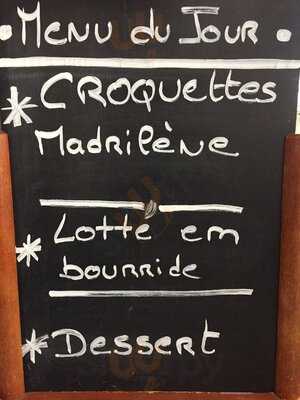 • Menu du Jour •
* CROQUETTES
Madrilène
* Lotte em
bourride
* Dessert